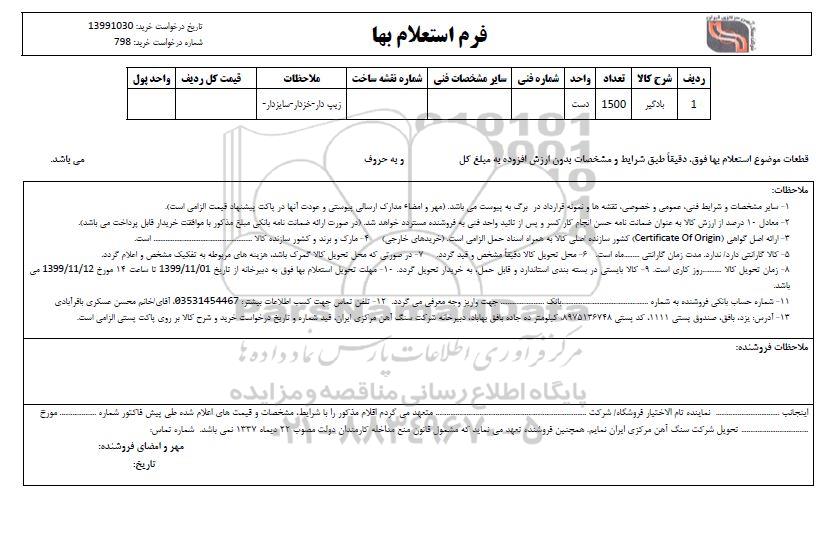 فرم استعلام بها
تاریخ درخواست خرید: 13991030
شماره درخواست خرید: 798
ردیف شرح کالا تعداد واحد شماره فنی سایر مشخصات فنی شماره نقشه ساخت ملاحظات قیمت کل ردیف واحد پول
1 بادگیر 1500 دست زیپ دار-خزدار-سایزدار-
قطعات موضوع استعلام بها فوق، دقیقاً طبق شرایط و مشخصات بدون ارزش افزوده به مبلغ کل و به حروف می باشد.
ملاحظات:
۱- سایر مشخصات و شرایط فنی، عمومی و خصوصی، نقشه ها و نمونه قرارداد در برگ به پیوست می باشد. (مهر و امضاء مدارک ارسالی پیوستی و عودت آنها در پاکت پیشنهاد قیمت الزامی است).
۲- معادل ۱۰ درصد از ارزش کالا به عنوان ضمانت نامه حسن انجام کار کسر و پس از تائید واحد فنی به فروشنده مسترد خواهد شد. (در صورت ارائه ضمانت نامه بانکی مبلغ مذکور با موافقت خریدار قابل پرداخت می باشد).
۳- ارائه اصل گواهی (Certificate Of Origin) کشور سازنده اصلی کالا به همراه اسناد حمل الزامی است. (خریدهای خارجی) ۴- مارک و برند و کشور سازنده کالا .................... است.
۵- کالا گارانتی دارد/ ندارد. مدت زمان گارانتی ........ماه است. ۶- محل تحویل کالا دقیقاً مشخص و قید گردد. ۷- در صورتی که محل تحویل کالا گمرک باشد، هزینه های مربوطه به تفکیک مشخص و اعلام گردد.
۸- زمان تحویل کالا ..........روز کاری است. ۹- کالا بایستی در بسته بندی استاندارد و قابل حمل، به خریدار تحویل گردد. ۱۰- مهلت تحویل استعلام بها فوق به دبیرخانه از تاریخ 1399/11/01 تا ساعت ۱۴ مورخ 1399/11/12 می
باشد.
۱۱- شماره حساب بانکی فروشنده به شماره ....................بانک .................... جهت واریز وجه معرفی می گردد. ۱۲- تلفن تماس جهت کسب اطلاعات بیشتر: 03531454467، آقای/خانم محسن عسکری باقرآبادی
۱۳- آدرس: یزد، بافق، صندوق پستی ۱۱۱۱، کد پستی ۸۹۷۵۱۳۶۷۴۸، کیلومتر ده جاده بافق بهاباد، دبیرخانه شرکت سنگ آهن مرکزی ایران، قید شماره و تاریخ درخواست خرید و شرح کالا بر روی پاکت پستی الزامی است.
ملاحظات فروشنده:
اینجانب .................... نماینده تام الاختیار فروشگاه/ شرکت .................... متعهد می گردم اقلام مذکور را با شرایط، مشخصات و قیمت های اعلام شده طی پیش فاکتور شماره .......... مورخ
.................... تحویل شرکت سنگ آهن مرکزی ایران نمایم. همچنین فروشنده تعهد می نماید که مشمول قانون منع مداخله کارمندان دولت مصوب ۲۲ دیماه ۱۳۳۷ نمی باشد. شماره تماس:
مهر و امضای فروشنده:
تاریخ:
ParsNamadData
مرکز فرآوری اطلاعات پارس نماد داده ها
پایگاه اطلاع رسانی مناقصه و مزایده
۰۲۱-۸۸۳۴۹۶۷۰-۵